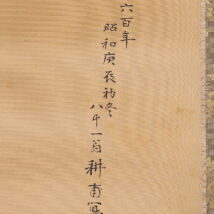 六百年
昭和庚辰初冬
八十一翁耕甫寫